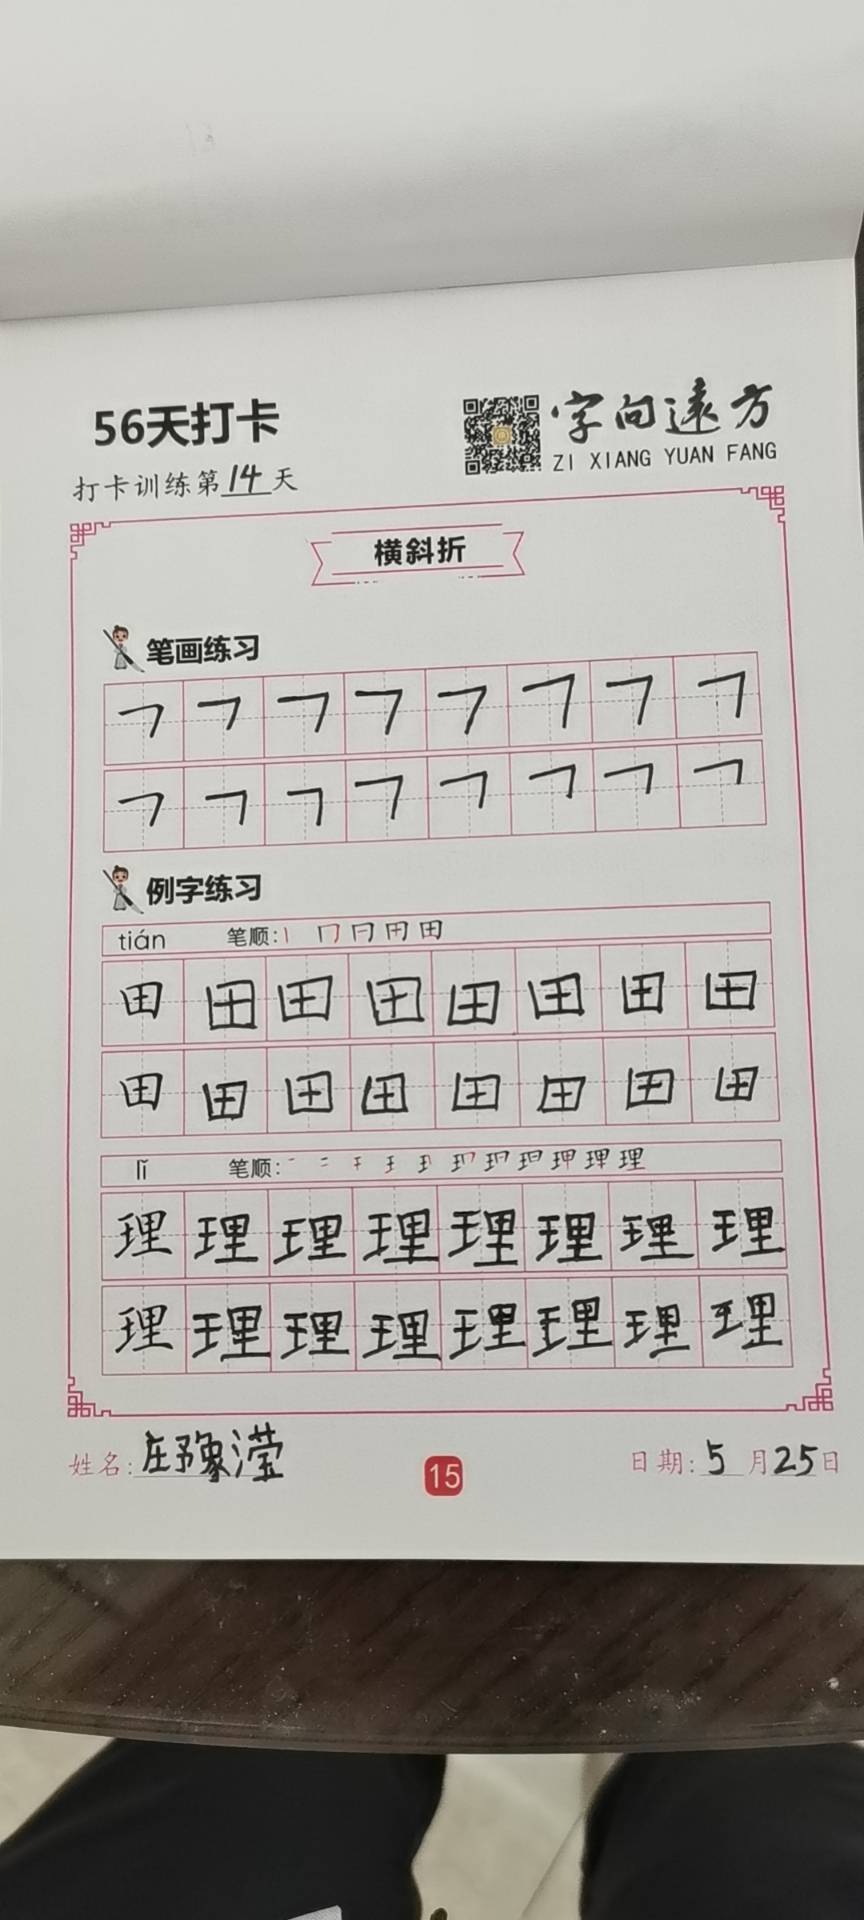 56天打卡
字向远方
ZI XIANG YUAN FANG
打卡训练第14天
横斜折
笔画练习
㇕ ㇕ ㇕ ㇕ ㇕ ㇕ ㇕ ㇕
㇕ ㇕ ㇕ ㇕ ㇕ ㇕ ㇕ ㇕
例字练习
tián 笔顺: 丨 冂 冃 用 田
田 田 田 田 田 田 田 田
田 田 田 田 田 田 田 田
lǐ 笔顺: 理
理 理 理 理 理 理 理 理
理 理 理 理 理 理 理 理
姓名: 庄豫滢
15
日期: 5月25日